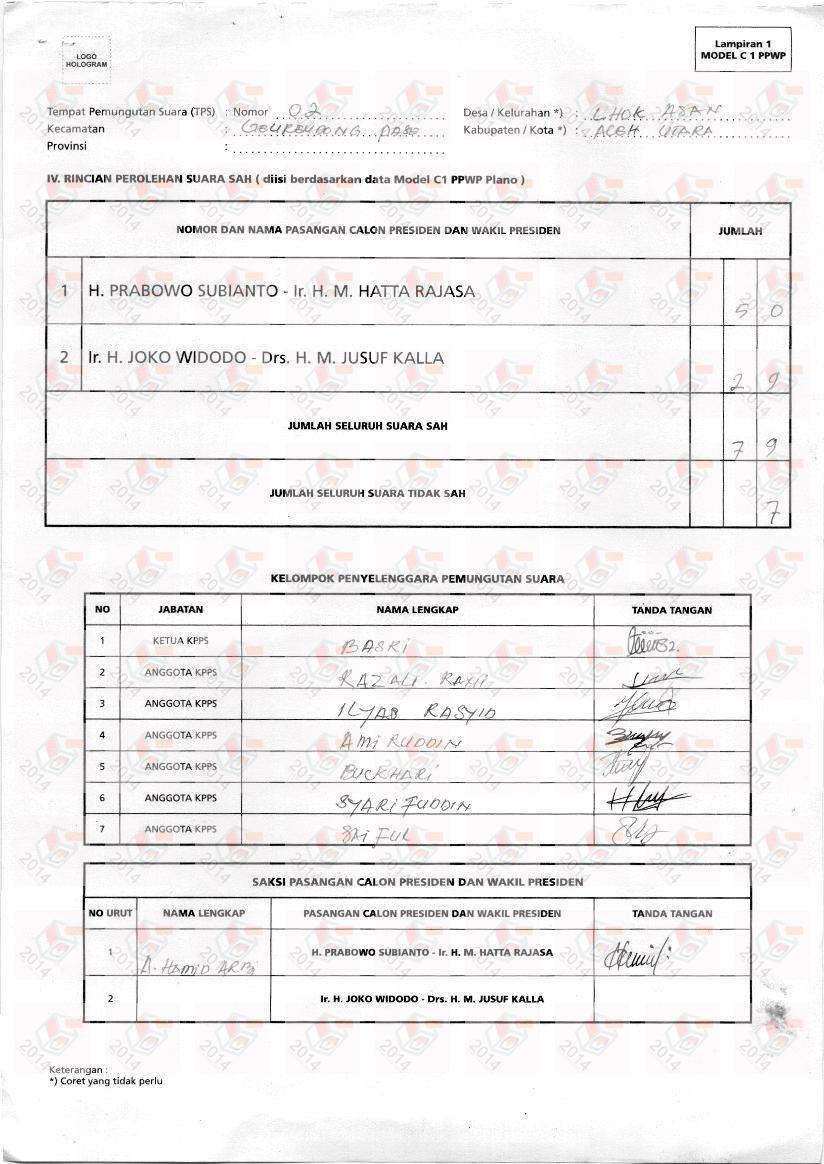 LOGO
HOLOGRAM
Lampiran 1
MODEL C 1 PPWP
Tempat Pemungutan Suara (TPS) : Nomor 02 Desa / Kelurahan *) : LHOK ASAN
Kecamatan : GEUREUDONG PASE Kabupaten / Kota *) : ACEH UTARA
Provinsi :
IV. RINCIAN PEROLEHAN SUARA SAH ( diisi berdasarkan data Model C1 PPWP Plano )
NOMOR DAN NAMA PASANGAN CALON PRESIDEN DAN WAKIL PRESIDEN JUMLAH
1 H. PRABOWO SUBIANTO - Ir. H. M. HATTA RAJASA 5 0
2 Ir. H. JOKO WIDODO - Drs. H. M. JUSUF KALLA 2 9
JUMLAH SELURUH SUARA SAH 7 9
JUMLAH SELURUH SUARA TIDAK SAH 7
KELOMPOK PENYELENGGARA PEMUNGUTAN SUARA
NO JABATAN NAMA LENGKAP TANDA TANGAN
1 KETUA KPPS BASRI
2 ANGGOTA KPPS RAZALI
3 ANGGOTA KPPS ILYAS RASYID
4 ANGGOTA KPPS AMIRUDDIN
5 ANGGOTA KPPS BUCKHARI
6 ANGGOTA KPPS SYARIFUDDIN
7 ANGGOTA KPPS SAIFUL
SAKSI PASANGAN CALON PRESIDEN DAN WAKIL PRESIDEN
NO URUT NAMA LENGKAP PASANGAN CALON PRESIDEN DAN WAKIL PRESIDEN TANDA TANGAN
1 A. HAMID ARBI H. PRABOWO SUBIANTO - Ir. H. M. HATTA RAJASA
2 Ir. H. JOKO WIDODO - Drs. H. M. JUSUF KALLA
Keterangan :
*) Coret yang tidak perlu